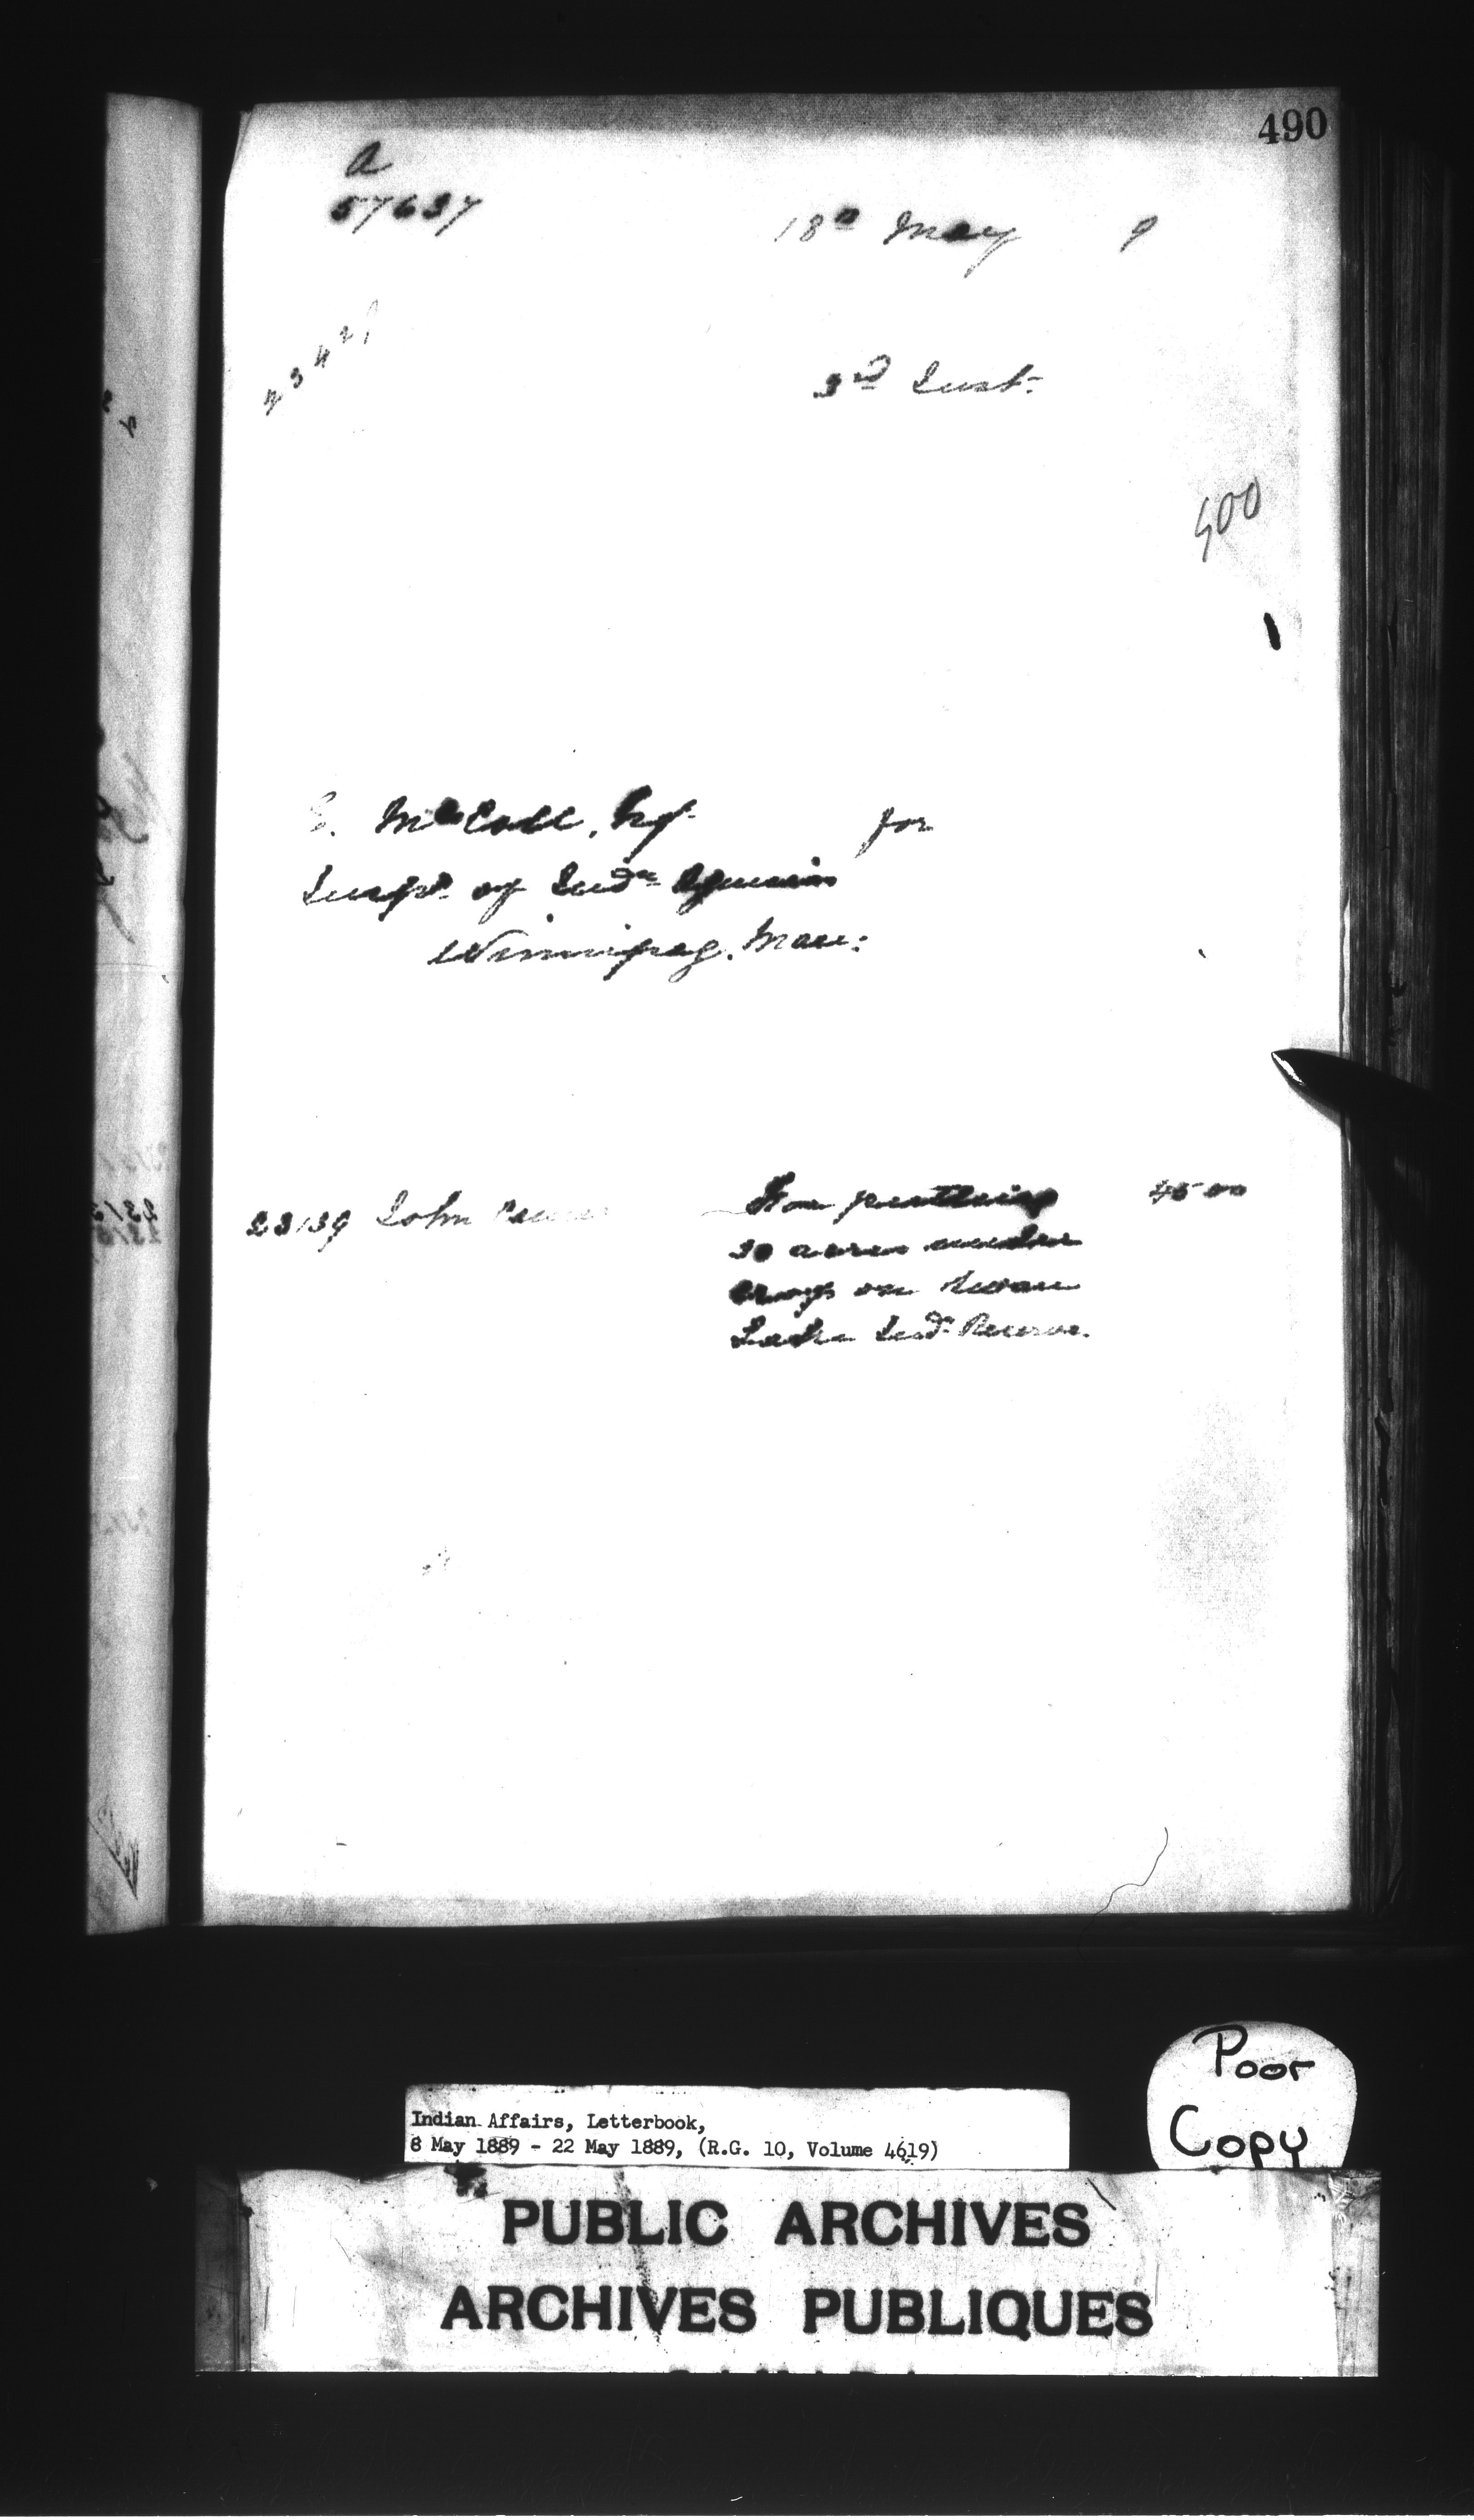 490
a
57637
18th May 9
23421
3rd Inst.
400
E. McColl, Esq. for
Inspr. of Indn Agencies
Winnipeg. Man:
23139 John
For putting 45 00
30 acres under
crop on Swan
Lake Indn Reserve.
Poor
Copy
Indian Affairs, Letterbook,
8 May 1889 - 22 May 1889, (R.G. 10, Volume 4619)
PUBLIC ARCHIVES
ARCHIVES PUBLIQUES